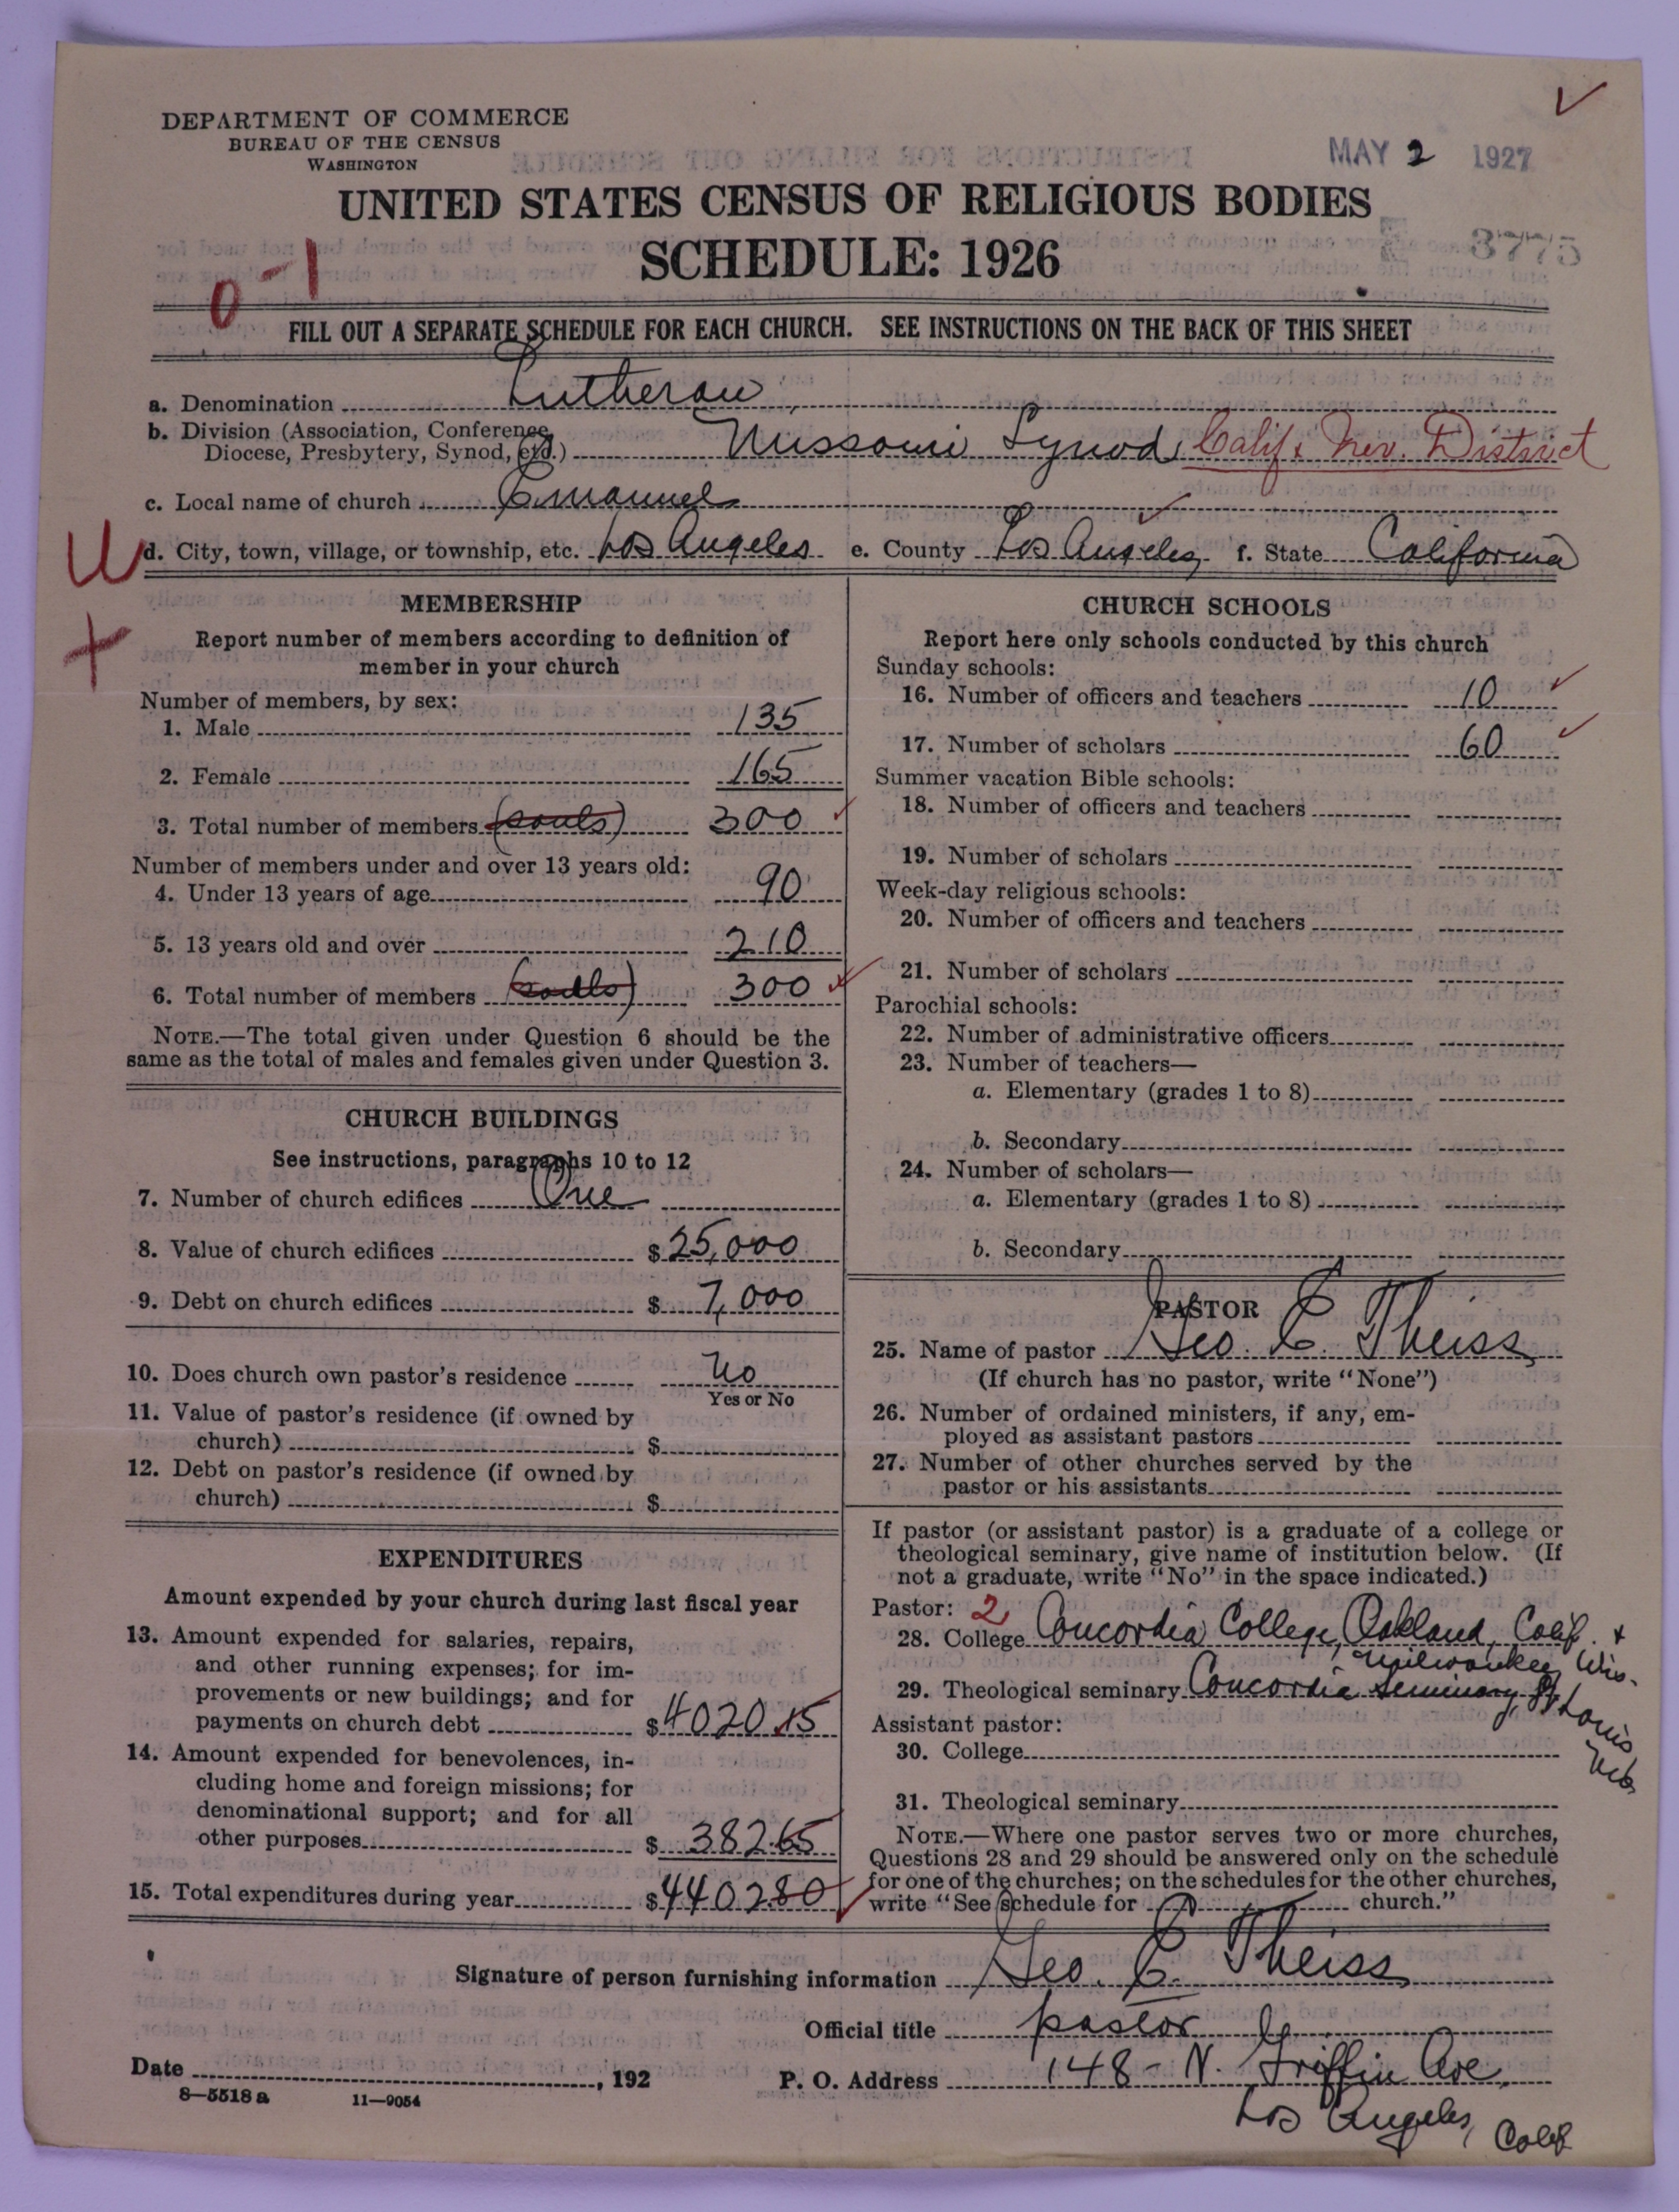 DEPARTMENT OF COMMERCE
BUREAU OF THE CENSUS
WASHINGTON
MAY 2 1927
UNITED STATES CENSUS OF RELIGIOUS BODIES
SCHEDULE: 1926
3775
0-1
FILL OUT A SEPARATE SCHEDULE FOR EACH CHURCH. SEE INSTRUCTIONS ON THE BACK OF THIS SHEET
a. Denomination Lutheran
b. Division (Association, Conference,
Diocese, Presbytery, Synod, etc.) Missouri Synod, Calif & Nev. District
c. Local name of church Emanuel
d. City, town, village, or township, etc. Los Angeles e. County Los Angeles f. State California
U
+
MEMBERSHIP
Report number of members according to definition of
member in your church
Number of members, by sex:
1. Male 135
2. Female 165
3. Total number of members (souls) 300
Number of members under and over 13 years old:
4. Under 13 years of age 90
5. 13 years old and over 210
6. Total number of members (souls) 300
NOTE.—The total given under Question 6 should be the
same as the total of males and females given under Question 3.
CHURCH BUILDINGS
See instructions, paragraphs 10 to 12
7. Number of church edifices One
8. Value of church edifices $25,000
9. Debt on church edifices $7,000
10. Does church own pastor's residence No
Yes or No
11. Value of pastor's residence (if owned by
church) $
12. Debt on pastor's residence (if owned by
church) $
EXPENDITURES
Amount expended by your church during last fiscal year
13. Amount expended for salaries, repairs,
and other running expenses; for im-
provements or new buildings; and for
payments on church debt $4020.15
14. Amount expended for benevolences, in-
cluding home and foreign missions; for
denominational support; and for all
other purposes $382.65
15. Total expenditures during year $4402.80
CHURCH SCHOOLS
Report here only schools conducted by this church
Sunday schools:
16. Number of officers and teachers 10
17. Number of scholars 60
Summer vacation Bible schools:
18. Number of officers and teachers
19. Number of scholars
Week-day religious schools:
20. Number of officers and teachers
21. Number of scholars
Parochial schools:
22. Number of administrative officers
23. Number of teachers—
a. Elementary (grades 1 to 8)
b. Secondary
24. Number of scholars—
a. Elementary (grades 1 to 8)
b. Secondary
PASTOR
25. Name of pastor Geo. E. Theiss
(If church has no pastor, write "None")
26. Number of ordained ministers, if any, em-
ployed as assistant pastors
27. Number of other churches served by the
pastor or his assistants
If pastor (or assistant pastor) is a graduate of a college or
theological seminary, give name of institution below. (If
not a graduate, write "No" in the space indicated.)
Pastor: 2
28. College Concordia College, Oakland, Calif. +
Milwaukee, Wis.
29. Theological seminary Concordia Seminary, St Louis
Mo
Assistant pastor:
30. College
31. Theological seminary
NOTE.—Where one pastor serves two or more churches,
Questions 28 and 29 should be answered only on the schedule
for one of the churches; on the schedules for the other churches,
write "See schedule for church."
Signature of person furnishing information Geo. E. Theiss
Official title pastor
Date , 192 P. O. Address 148 - N. Griffin Ave,
Los Angeles, Calif
8—5518 a 11—9054